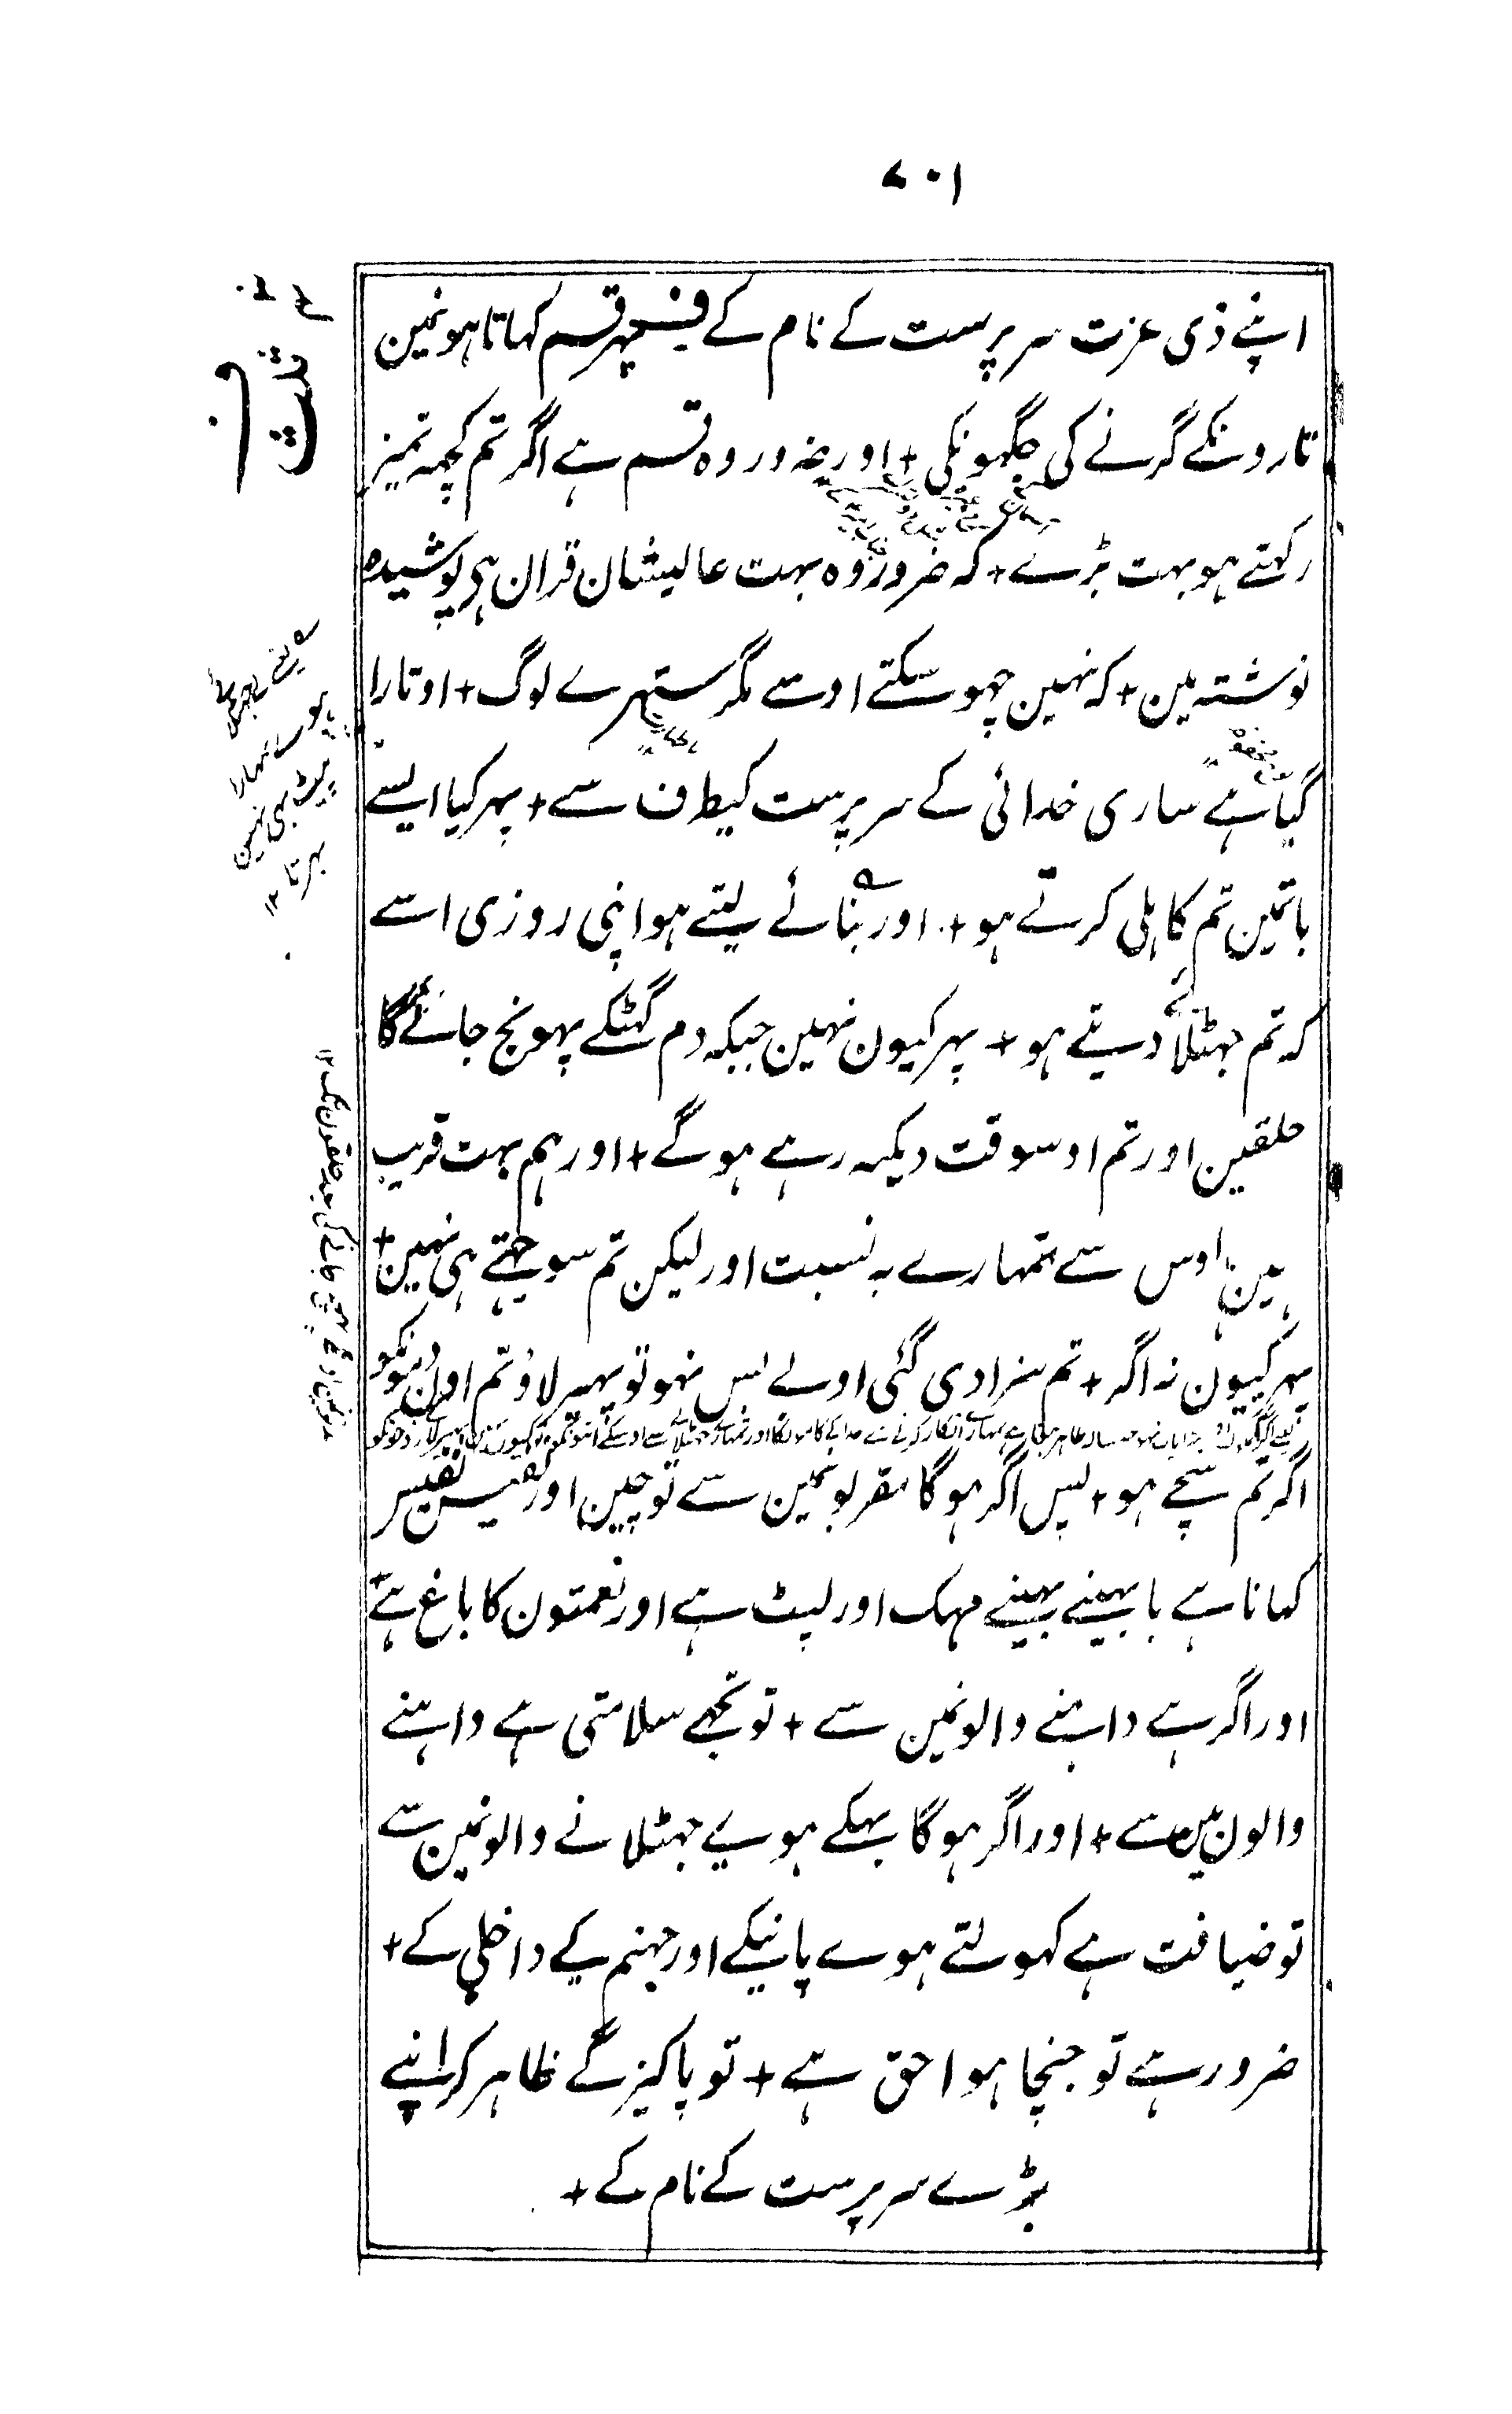 ۷۰۱
اپنے ذی عزت سرپرست کے نام کے پہر قسم کہاتا ہونمین
تارونکے گرنے کی جگہونکی + اور ضرور وہ قسم ہے اگر تم کچہہ تمیز
رکہتے ہو بہت بڑے + کہ ضرور وہ بہت عالیشان قران ہی پوشیدہ
نوشتہ مین + کہ نہین چہو سکتے اوسے مگر ستہرے لوگ + اوتارا
گیا ہے ساری خدائی کے سرپرست کیطرف سے + پہر کیا ایسے
باتمین تم کاہلی کرتے ہو + اور بنائے لیتے ہو اپنی روزی اسے
کہ تم جہٹلائے دیتے ہو + پہر کیون نہین جبکہ دم گہٹکے پہونچ جائے گا
حلقمین اور تم اوسوقت دیکہہ رہے ہوگے + اور ہم بہت قریب
ہین اوس سے تمہارے بہ نسبت اور لیکن تم سوجہتے ہی نہین +
پہر کیون نہ اگر + تم سزا دی گئی اولے بس نہو تو پہیر لاؤ تم اون
اگر تم سچے ہو + پس اگر ہوگا مقربونمین سے تو چین اور نفیس
کہانا ہے یا بہینے بہینے مہک اور لپٹ ہے اور نعمتون کا باغ ہے +
اور اگر ہے داہنے والونمین سے + تو تجہے سلامتی ہے داہنے
والون مین سے + اور اگر ہوگا بہکے ہویے جہٹلانے والونمین سے
تو ضیافت ہے کہولتے ہوے پانیکے اور جہنم کے داخلی کے +
ضرور ہے تو جنچا ہوا حق ہے + تو پاکیزگے ظاہر کر اپنے
بڑے سرپرست کے نام کے +
ثلث
پیٹ بہی نہین
بہرتا ۱۲